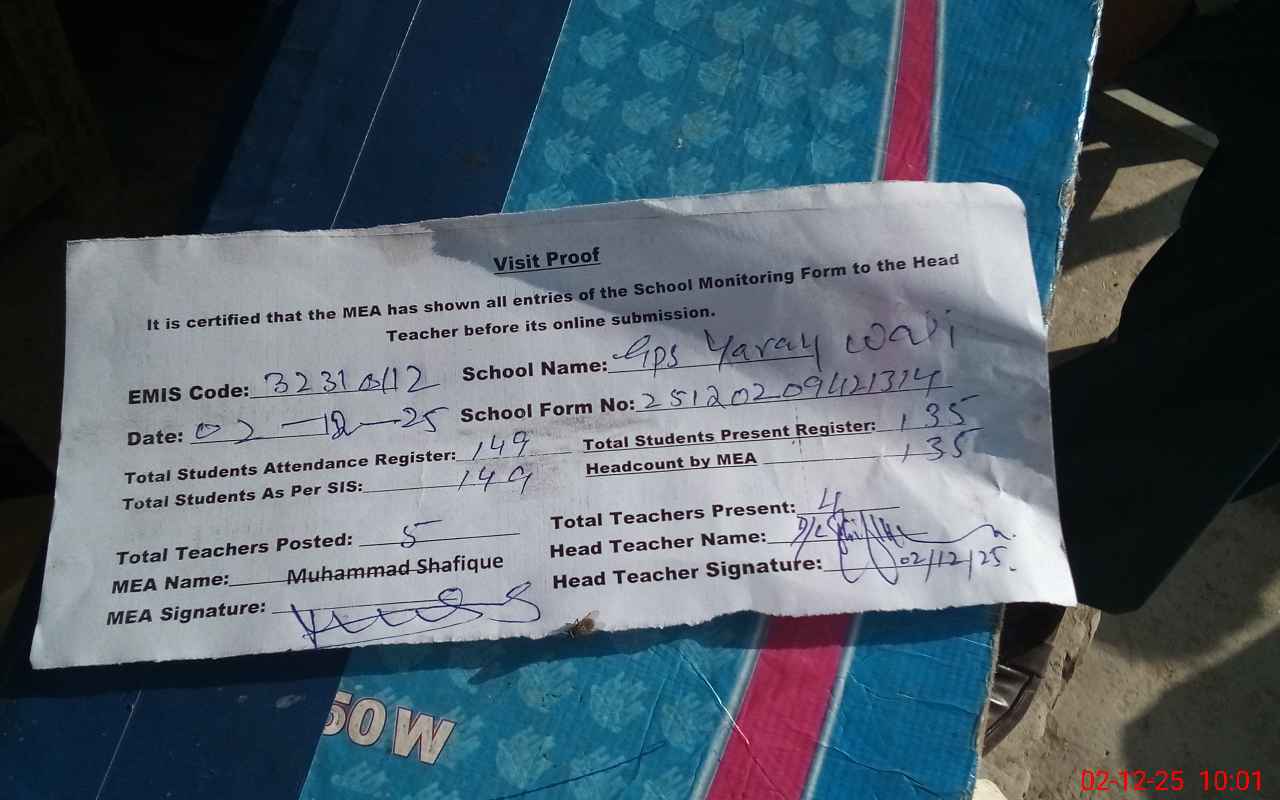 Visit Proof
It is certified that the MEA has shown all entries of the School Monitoring Form to the Head
Teacher before its online submission.
EMIS Code: 32310112 School Name: Gps Yaray Wali
Date: 02-12-25 School Form No: 2512020942131４
Total Students Attendance Register: 149 Total Students Present Register: 135
Total Students As Per SIS: 149 Headcount by MEA 135
Total Teachers Posted: 5 Total Teachers Present: 4
MEA Name: Muhammad Shafique Head Teacher Name:
MEA Signature: Head Teacher Signature: 02/12/25.
50W
02-12-25 10:01